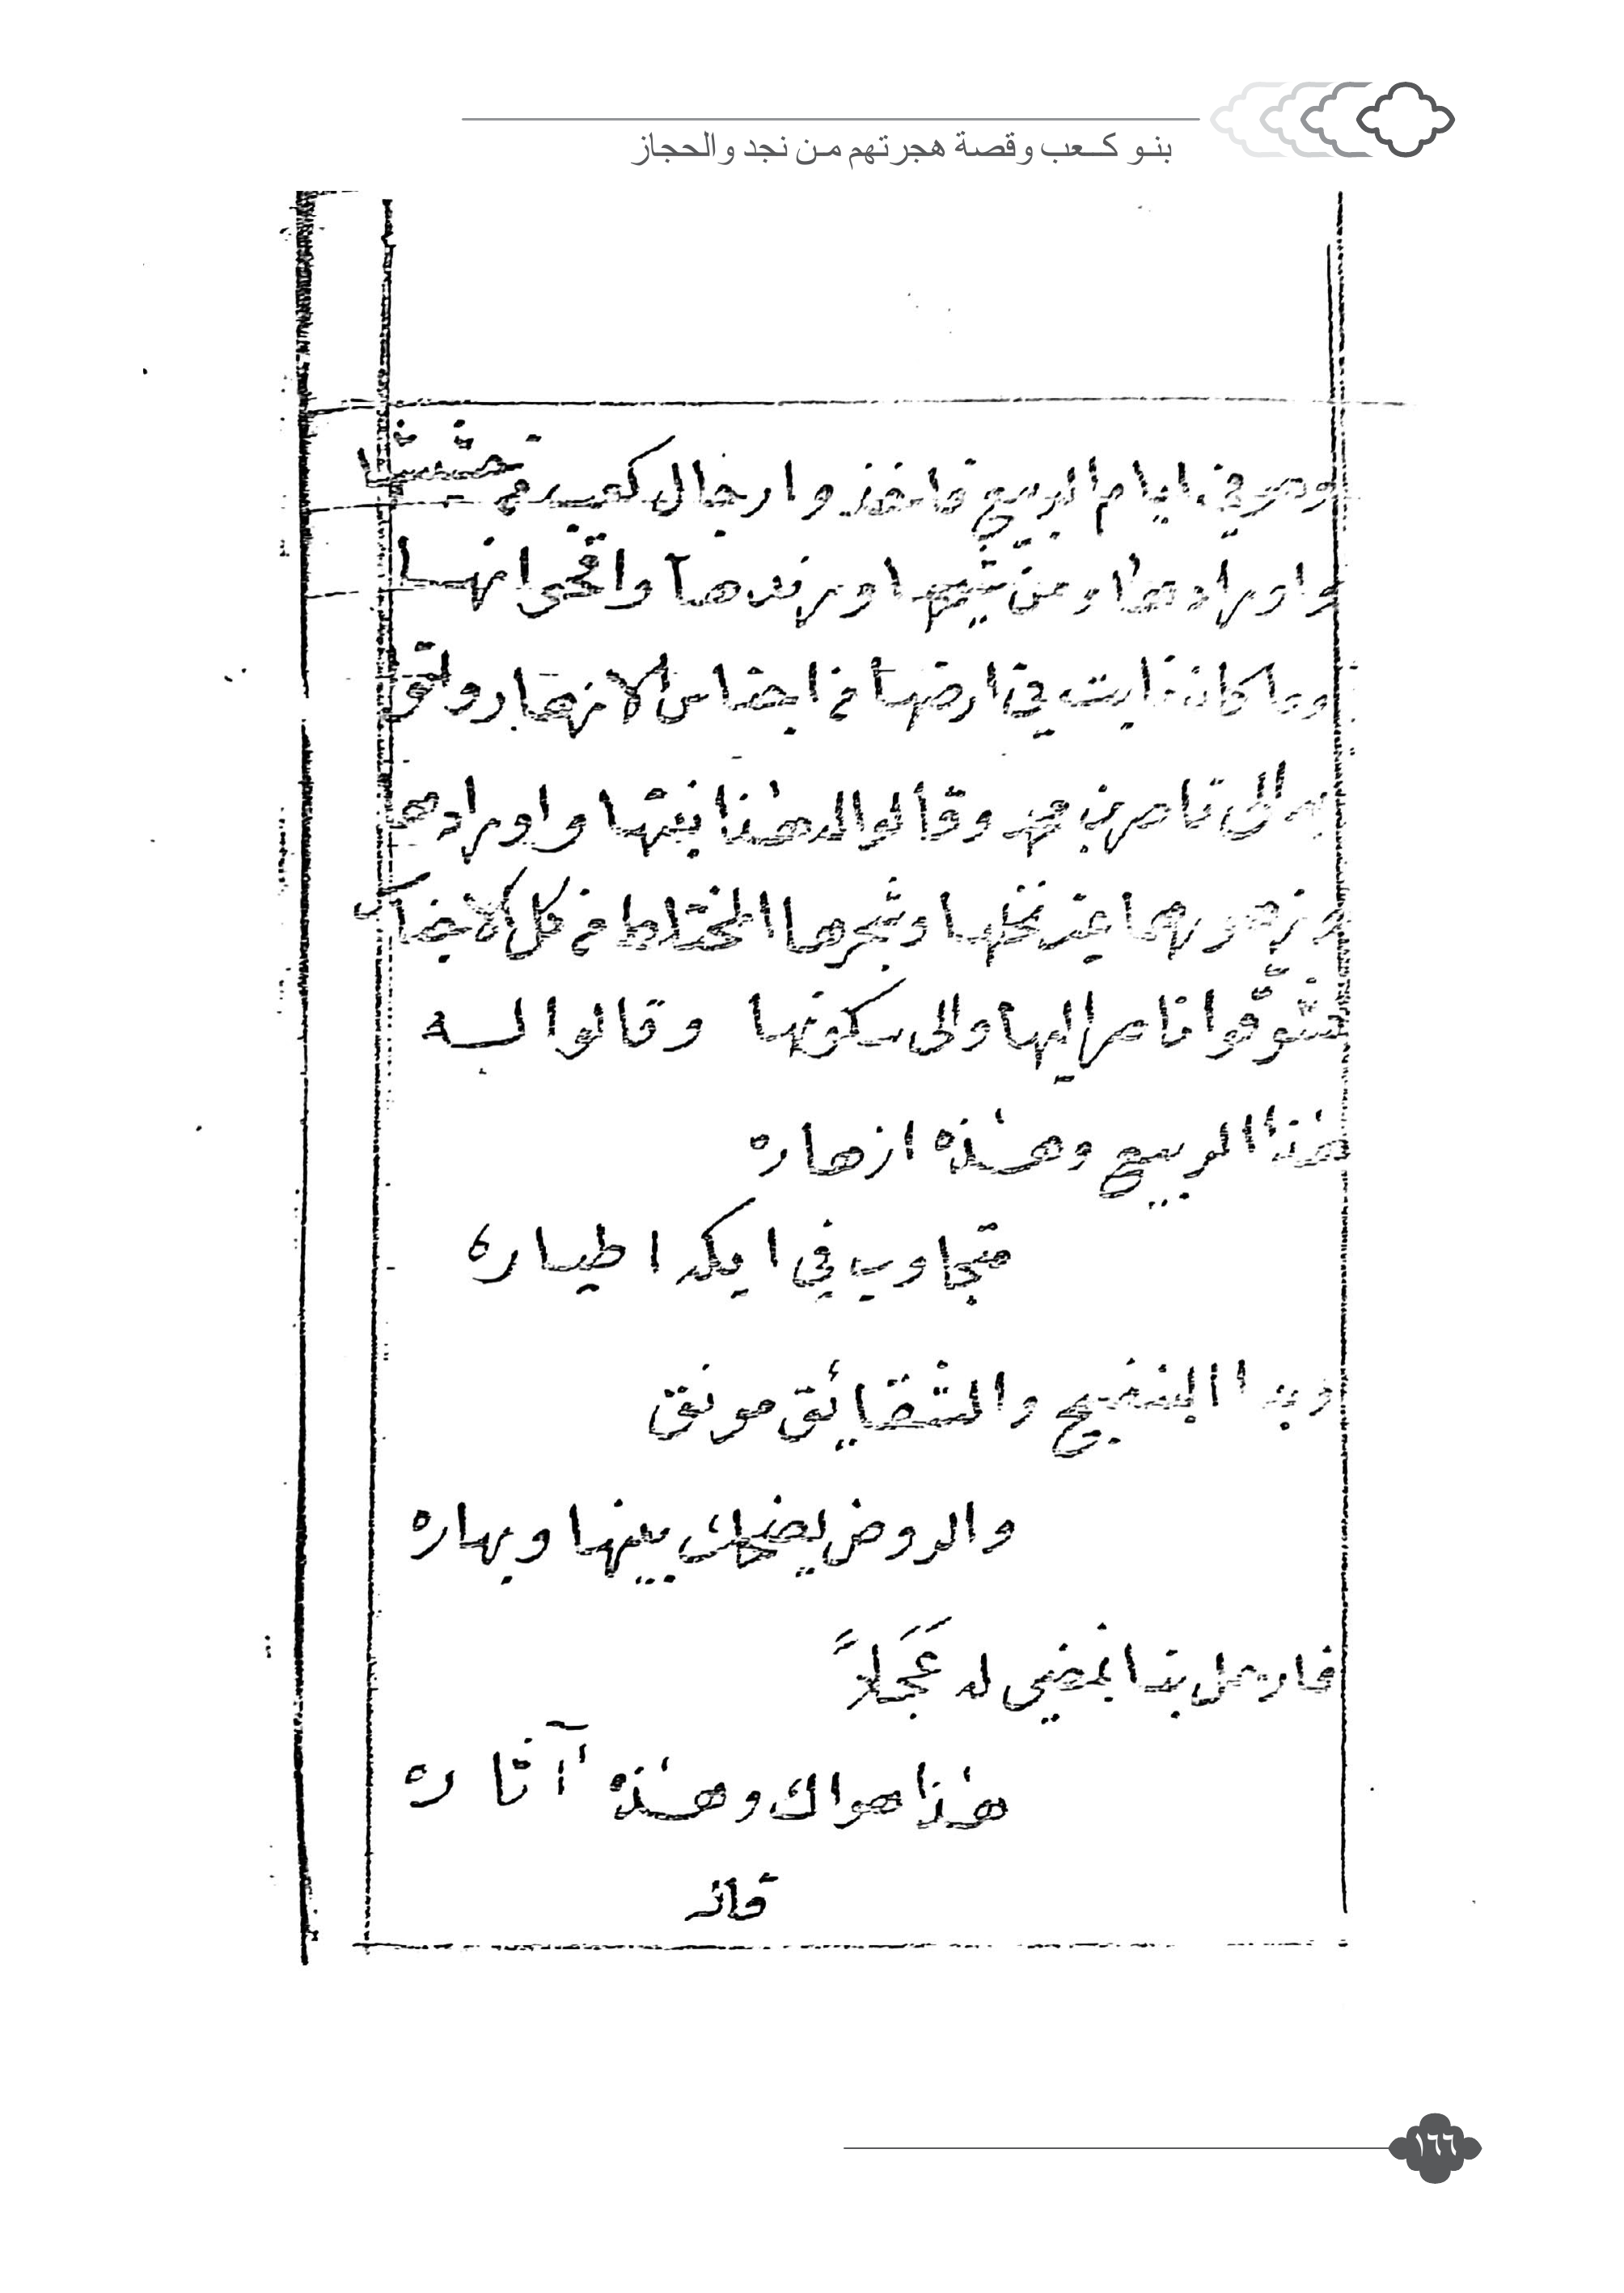 بنو كعب وقصة هجرتهم من نجد والحجاز
وهو في ايام الربيع فاخذوا رجال كعب من حشيشها
واورادها ومن شيحها ورندها واقحوانها
وما كان نابت في ارضها من اجناس الازهار
الى ناصر بن محمد وقالوا له هذا نبتها واورادها
وزهورها عند نخلها وشجرها المختلط من كل الاجناس
فشوّقوا ناصر اليها والى سكونها وقالوا له
هٰذا الربيع وهٰذه ازهاره
متجاوب في ايكه اطياره
وبدا البنفسج والشقائق مونق
والروض يضحك بينها وبهاره
فارحل بنا نمضي له عَجَلاً
هٰذا هواك وهٰذه آثاره
١٦٦